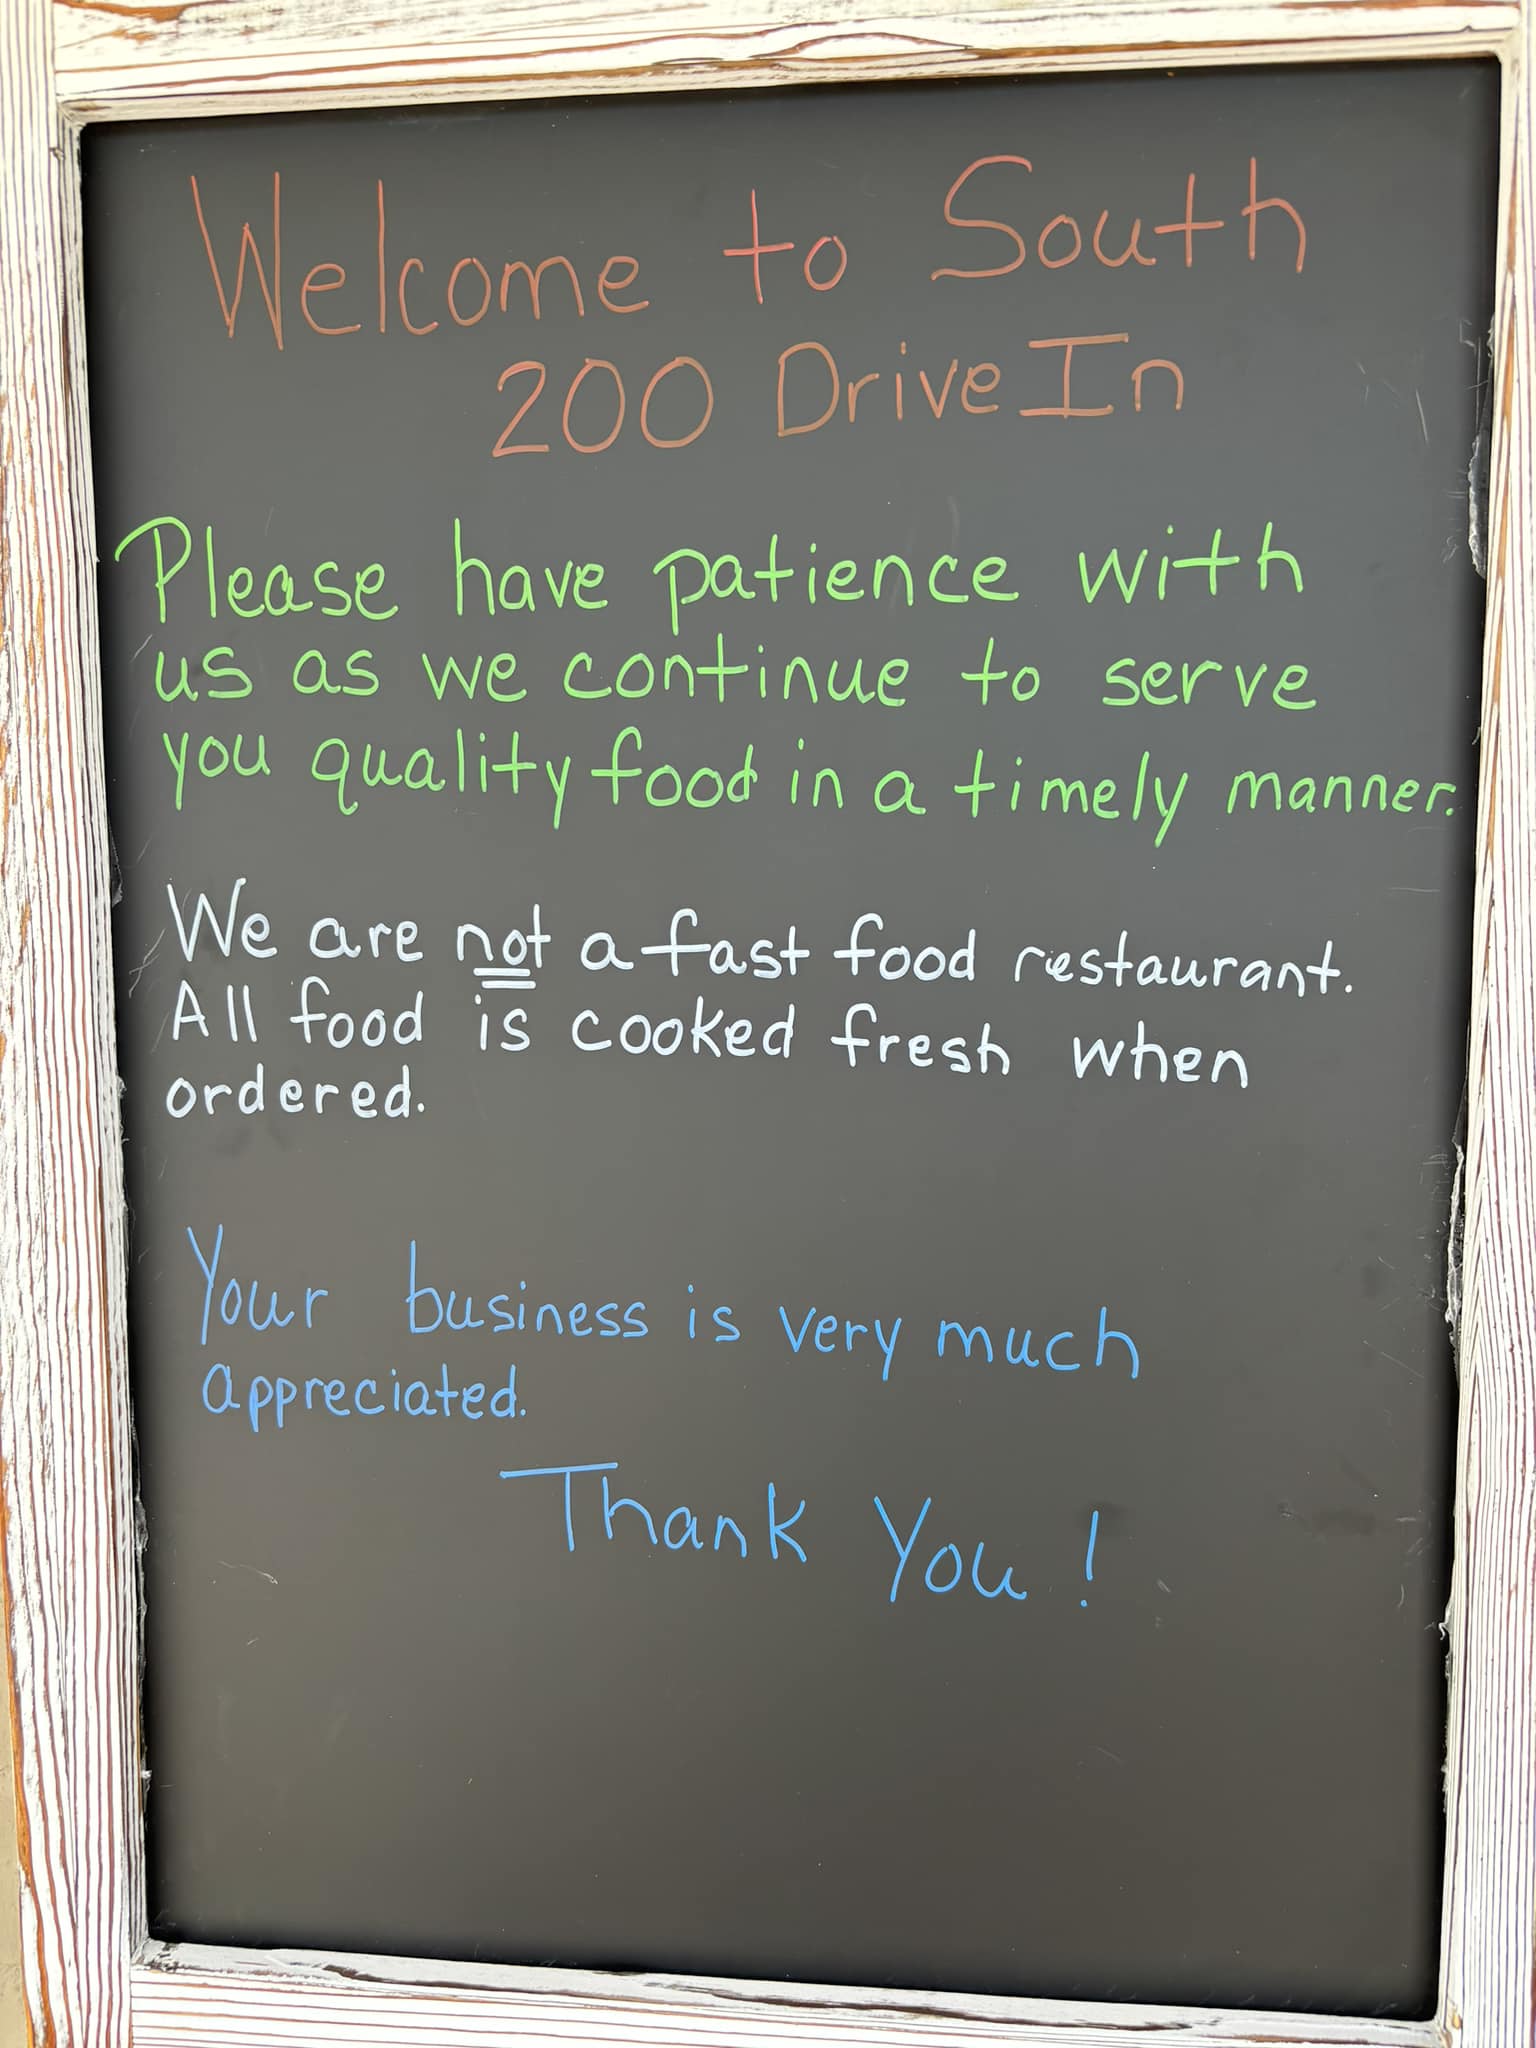 Welcome to South
200 Drive In
Please have patience with
us as we continue to serve
you quality food in a timely manner.
We are not a fast food restaurant.
All food is cooked fresh when
ordered.
Your business is very much
appreciated.
Thank You!